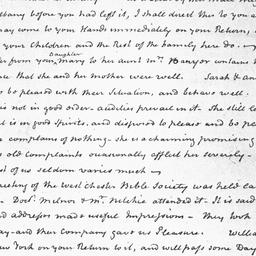 thany before you had left it, I shall direct this to you a
may come to your Hands immediately on your Return,
your Children and the Rest of the family here do.
Daughter
from your, Mary to her aunt Mrs. Banyer contains
that she and her mother were well. Sarah & an
to be pleased with their Situation, and behaves well.
is not in good order. audlies prevail in it. She still
is in good Spirits, and disposed to please and be ple
complains of nothing. she is a charming promising
old complaints occasionally afflict her severely.
of us seldom varies much
meeting of the West Chester Bible Society was held
Doct. Milnor & Mr. attended it. It is said
addresses made useful Impressions. They
day and their Company gave us Pleasure. Willia
New York on your Return to it, and will pass some Day